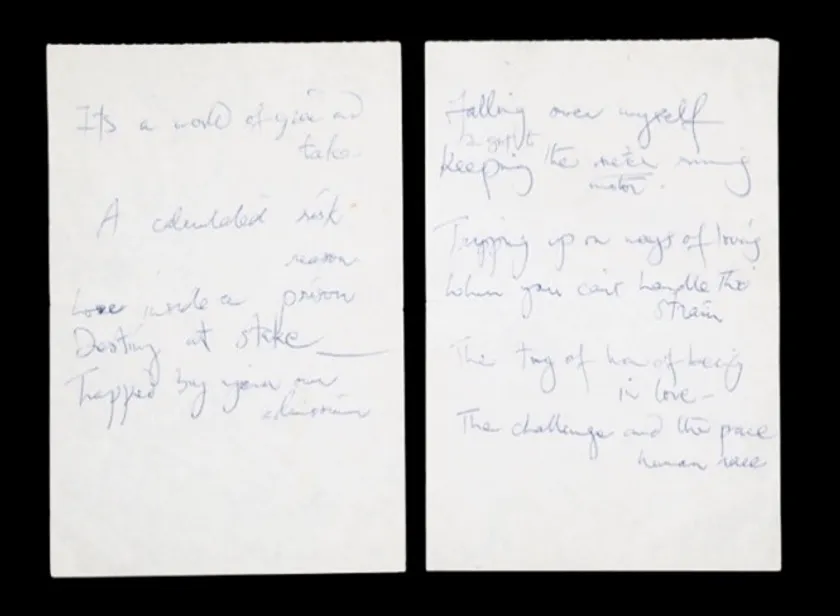 It's a world of give and
take
A calculated risk
reason
Love inside a prison
Destiny at stake
Trapped by your own
Falling over myself
Keeping the meter running
motor.
Tripping up on ways of loving
When you can't handle the
strain
The tug of of being
in love -
The challenge and the pace
human race